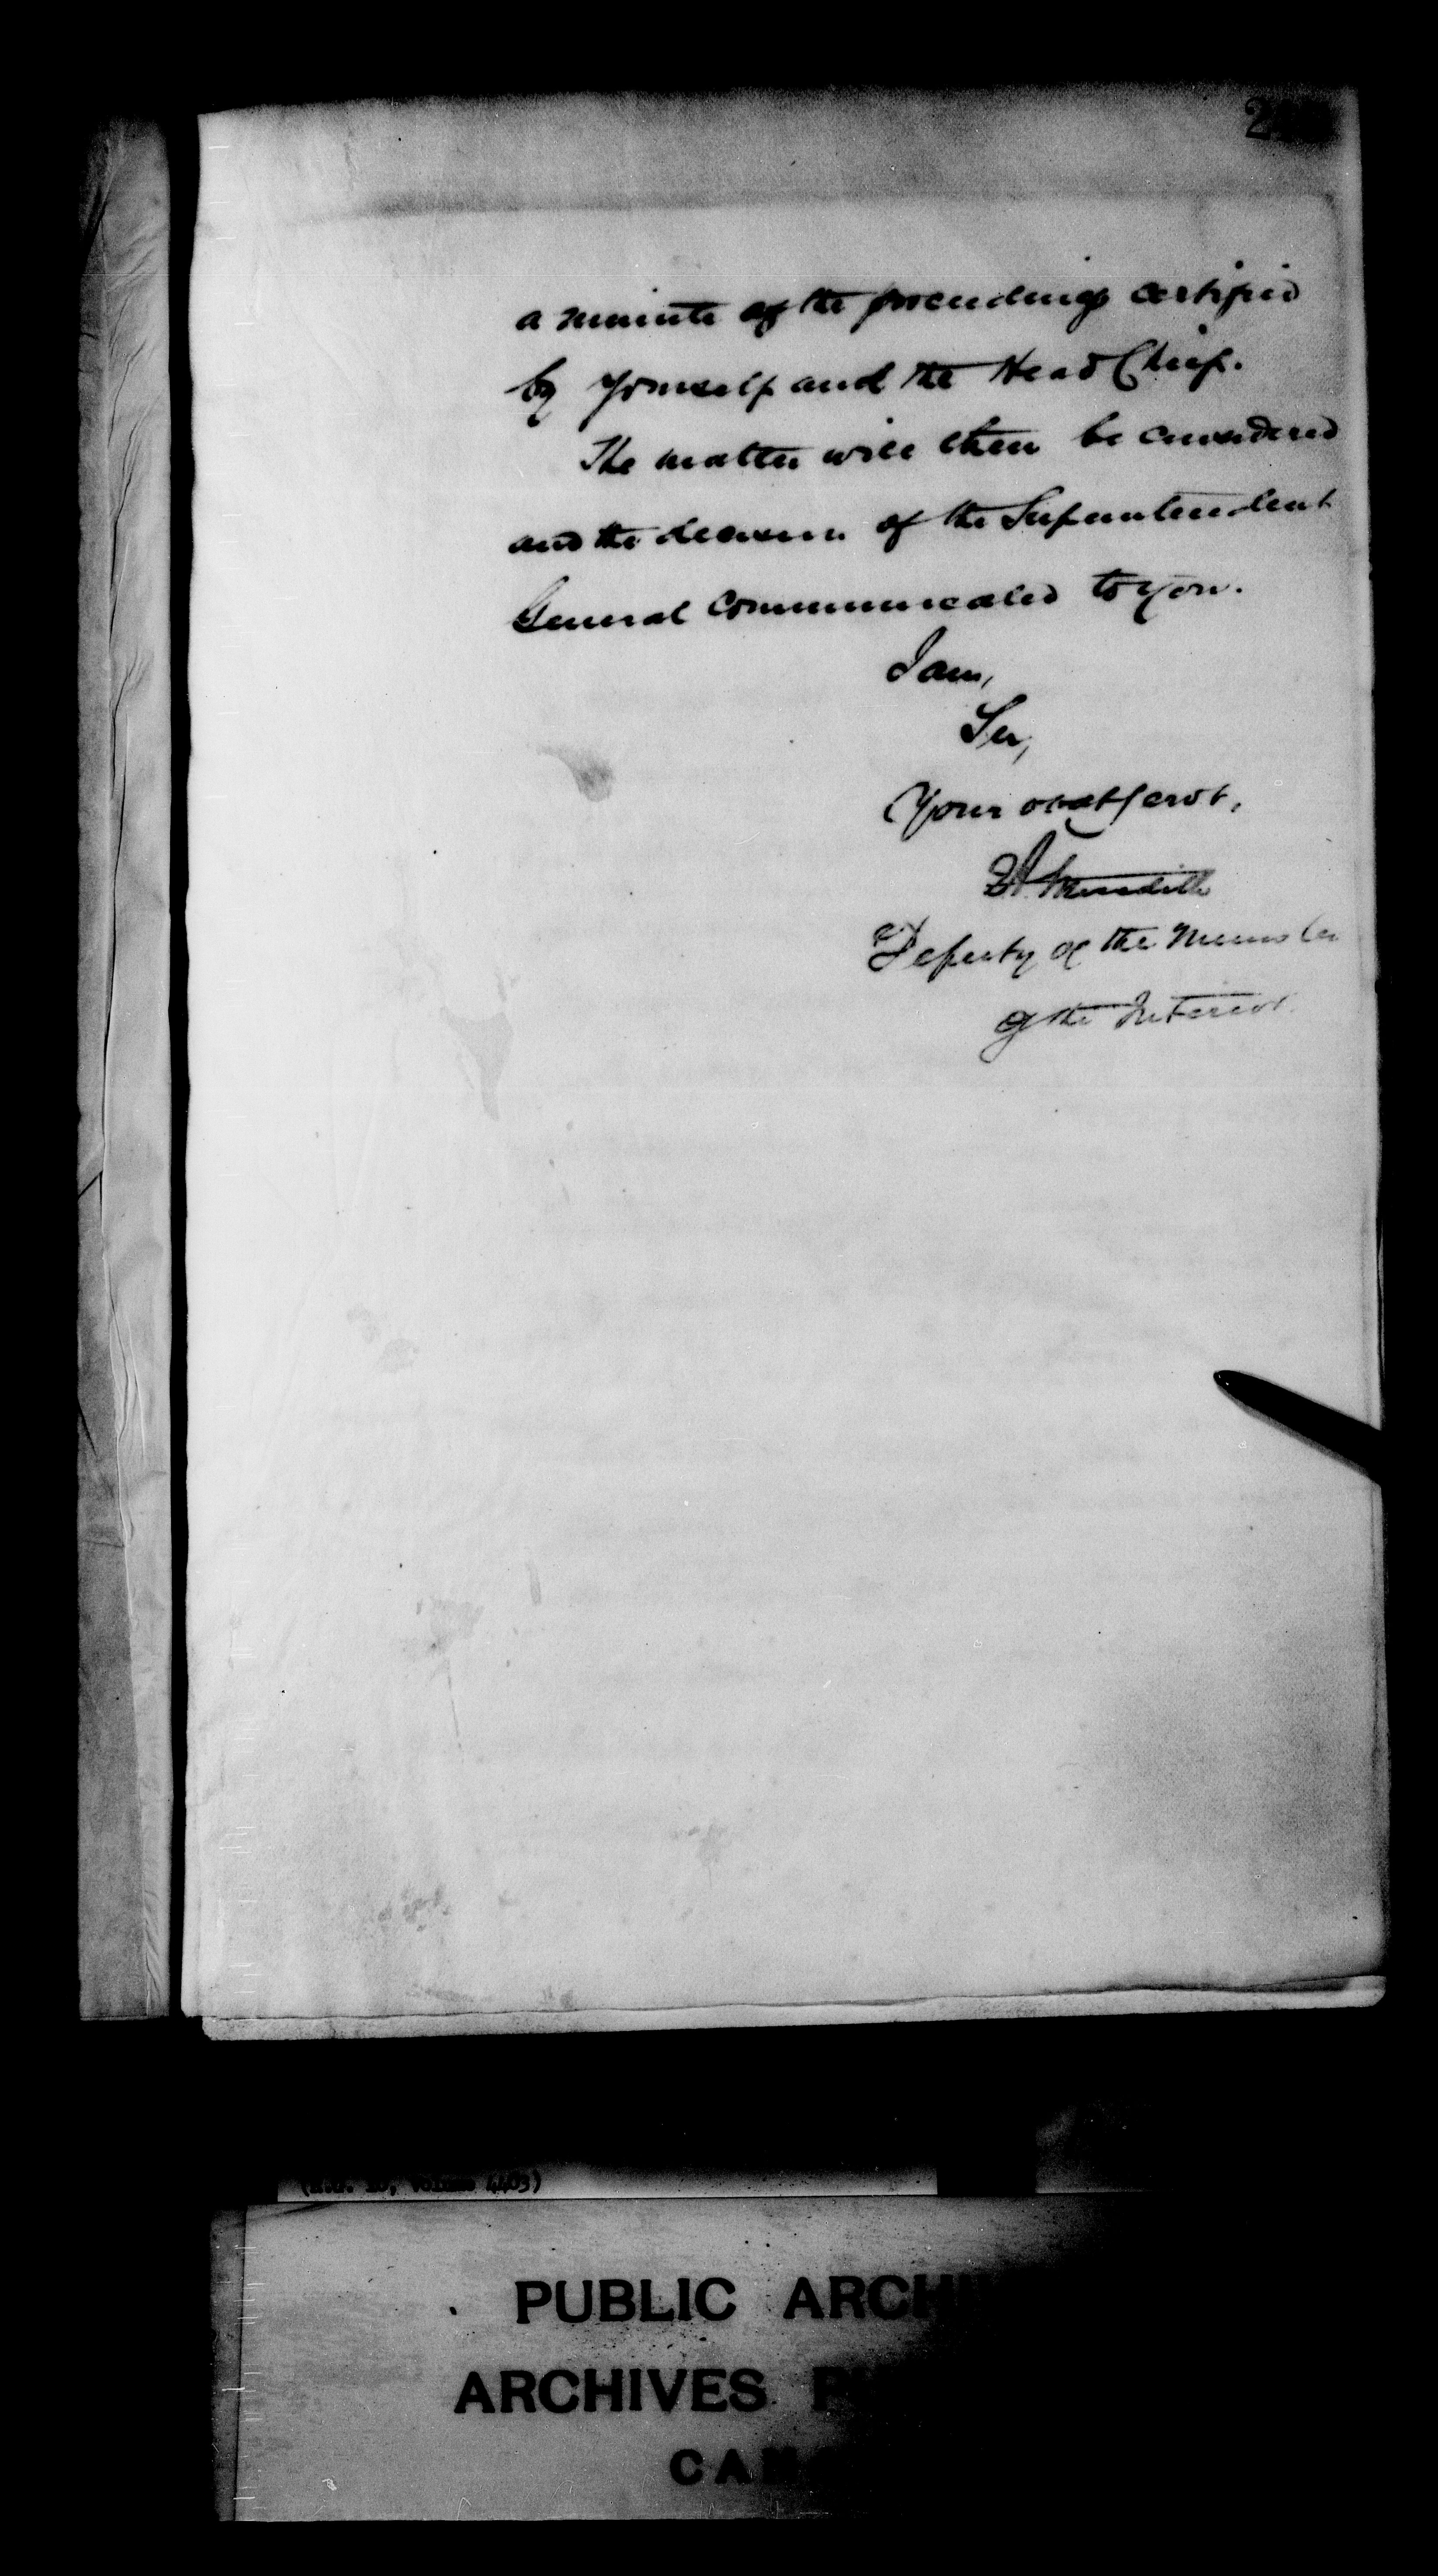 a minute of the proceedings certified
by yourself and the Head Chief.
The matter will then be considered
and the decision of the Superintendent
General communicated to you.
I am,
Sir,
Your obedt servt,
E A Meredith
Deputy of the Minister
of the Interior.
Volume 4403)
PUBLIC ARCHI
ARCHIVES P
CAN